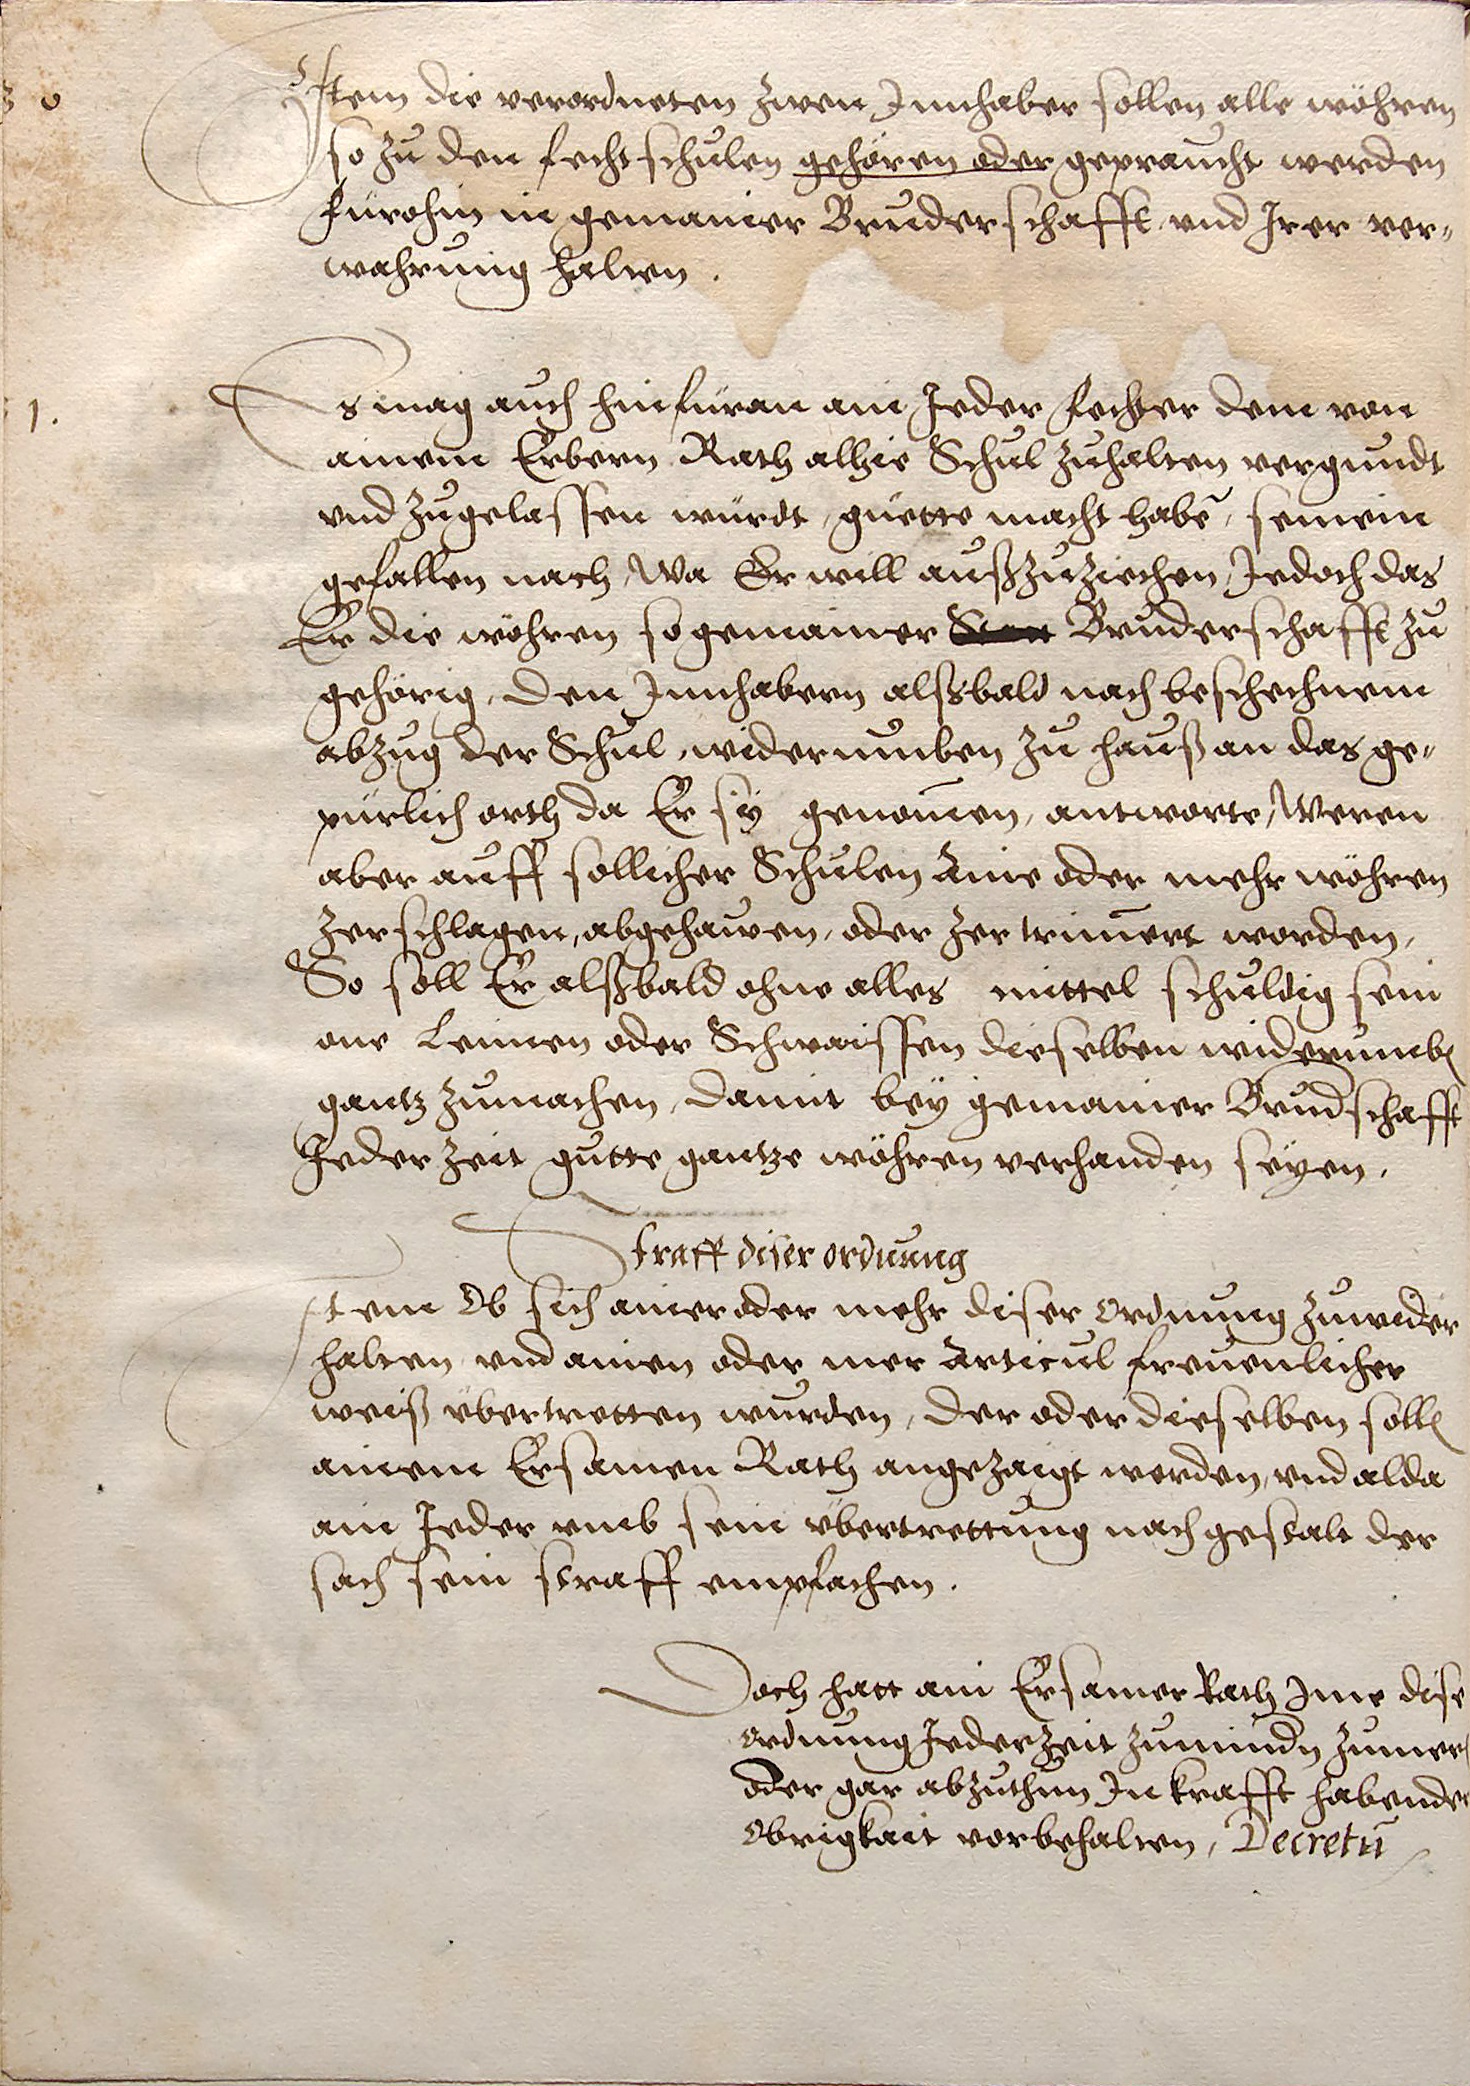 Item die verordneten zwen Innhaber sollen alle wöhren
so zu den fechtschulen gehören oder gepraucht werden
fürohin in gemainer Bruderschafft vnd Irer ver„
wahrung halten .
1.
Es mag auch hinfüran ain Jeder fechter dem von
ainem Erbern Rath alhie Schul zuhalten vergundt
vnd zugelassen würdt, guette macht habē, seinem
gefallen nach, Wa Er will außzuziechen, Jedoch das
Er die wöhren so gemainer Bruderschafft zu
gehörig, den Innhabern alßbald nach beschechnem
abzug der Schul, widerumben zu hauß an das ge„
pürlich orth da Er sÿ genom̄en, antworte, Weren
aber auff sollicher Schulen Aine oder mehr wöhren
zerschlagen, abgehawen, oder zertrim̄ert worden,
So soll Er alßbald ohne alles mittel schuldig sein
one Leimen oder Schwaissen dieselben widerumb
gantz zumachen, damit beÿ gemainer Brudschafft
Jeder zeit gutte gantze wöhren verhanden seÿen.
Straff diser ordnung
Item Ob sich ainer oder mehr diser Ordnung zuwider
halten vnd ainen oder mer Articul freuenlicher
weiß vbertretten wurden, der oder dieselben soll
ainem Ersamen Rath angezaigt werden, vnd alda
ain Jeder vmb sein vbertrettung nach gestalt der
sach sein straff empfachen.
Doch hatt ain Ersamer Rath Ime dise
ordnung Jederzeit zumindn zumer
oder gar abzuthun In krafft habender
Obrigkait vorbehalten, Decretū